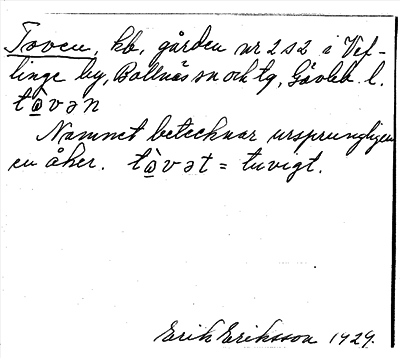 Toven, hb, gården nr 2 s 2 i Vef-
linge by, Bollnäs sn och tg, Gävleb. l.
tò̲vən
Namnet betecknar ursprungligen
en åker. tò̲vət = tuvigt.
Erik Eriksson 1929.